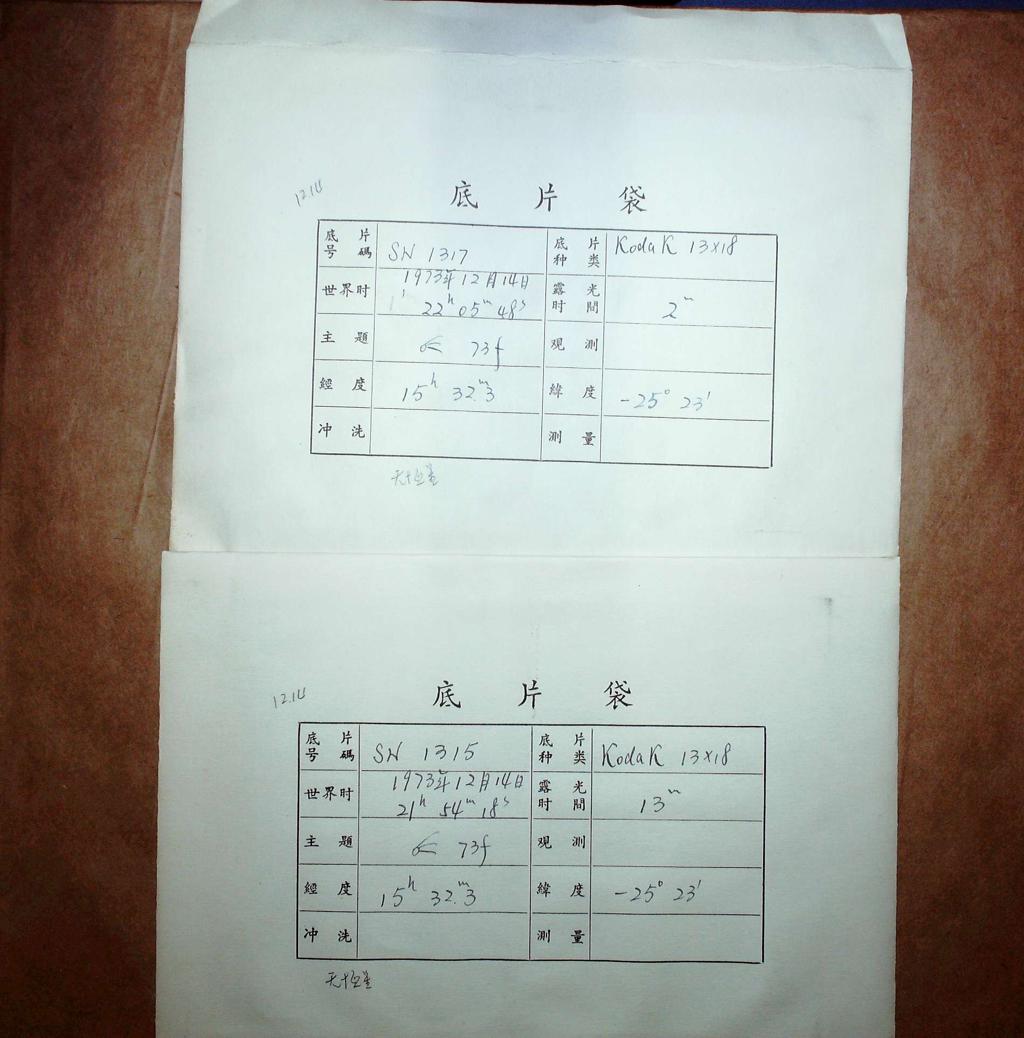 12.14
底片袋
底片号碼 SN 1317 底片种类 Kodak 13×18
世界时 1973年12月14日 22h 05m 48s 露光时間 2m
主題 73f 观測
經度 15h 32m.3 緯度 -25° 23'
冲洗 測量
12.14
底片袋
底片号碼 SN 1315 底片种类 Kodak 13×18
世界时 1973年12月14日 21h 54m 18s 露光时間 13m
主題 73f 观測
經度 15h 32m.3 緯度 -25° 23'
冲洗 測量